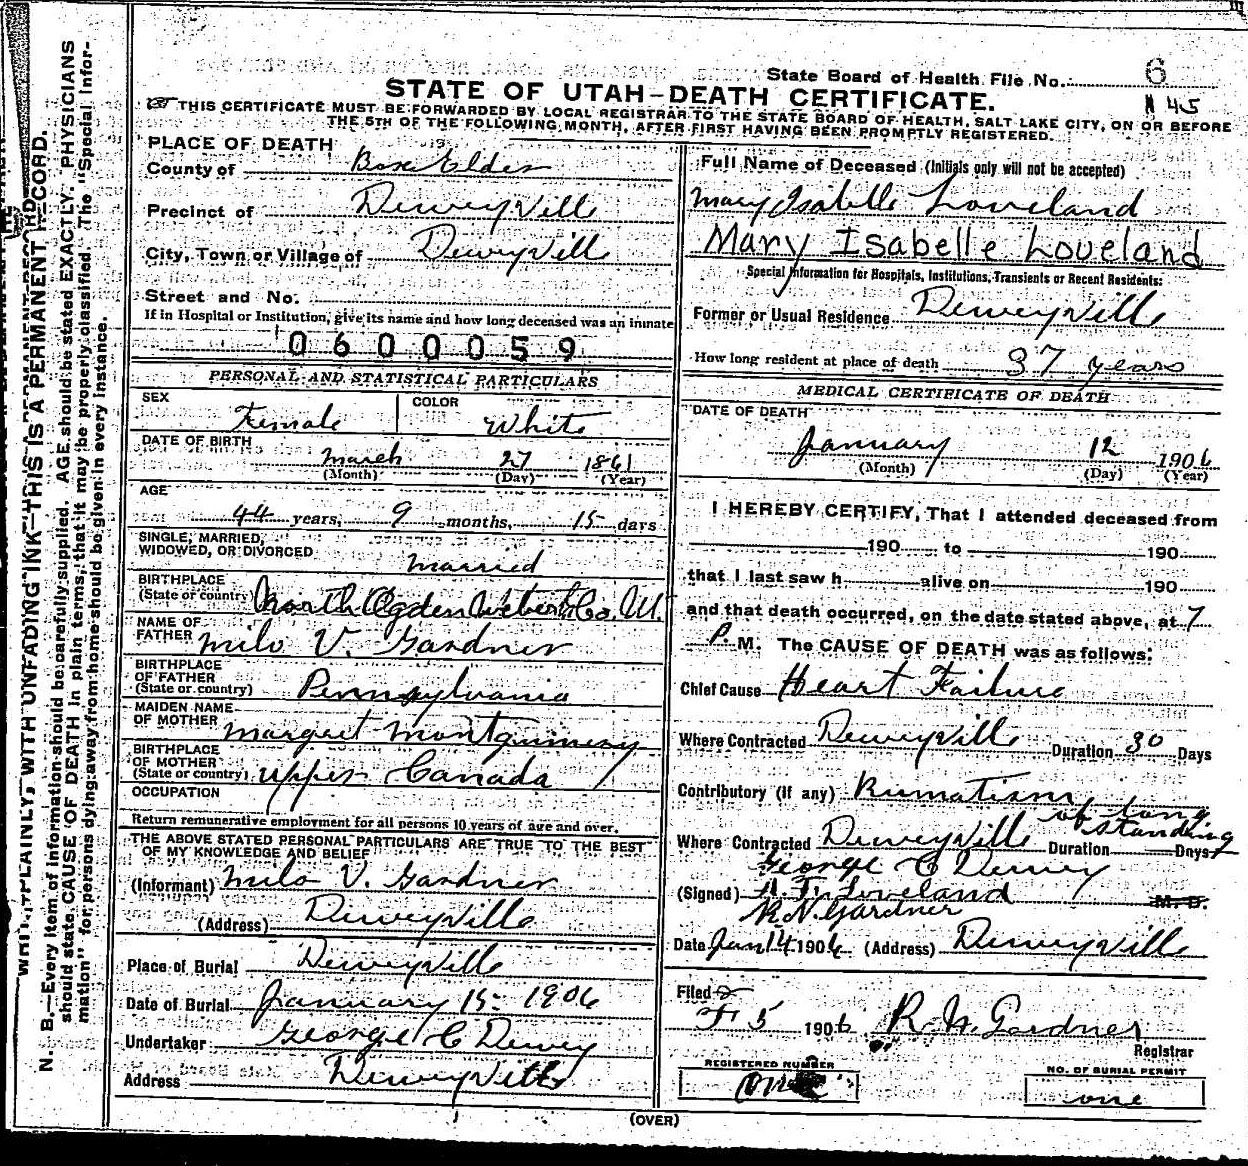 State Board of Health File No. 6
STATE OF UTAH-DEATH CERTIFICATE.
145
THIS CERTIFICATE MUST BE FORWARDED BY LOCAL REGISTRAR TO THE STATE BOARD OF HEALTH, SALT LAKE CITY, ON OR BEFORE
THE 5TH OF THE FOLLOWING MONTH, AFTER FIRST HAVING BEEN PROMPTLY REGISTERED.
PLACE OF DEATH
County of Box Elder
Precinct of Deweyville
City, Town or Village of Deweyvill
Street and No.
If in Hospital or Institution, give its name and how long deceased was an inmate
0600059
PERSONAL AND STATISTICAL PARTICULARS
SEX Female COLOR White
DATE OF BIRTH March 27 1861
(Month) (Day) (Year)
AGE
44 years, 9 months, 15 days
SINGLE, MARRIED,
WIDOWED, OR DIVORCED Married
BIRTHPLACE
(State or country) North Ogden Weber Co. Ut.
NAME OF
FATHER Milo V. Gardner
BIRTHPLACE
OF FATHER
(State or country) Pennsylvania
MAIDEN NAME
OF MOTHER Margret Montguimery
BIRTHPLACE
OF MOTHER
(State or country) Upper Canada
OCCUPATION
Return remunerative employment for all persons 10 years of age and over.
THE ABOVE STATED PERSONAL PARTICULARS ARE TRUE TO THE BEST
OF MY KNOWLEDGE AND BELIEF
(Informant) Milo V. Gardner
(Address) Deweyville
Place of Burial Deweyville
Date of Burial January 15 1906
Undertaker George C Dewey
Address Deweyville
Full Name of Deceased (Initials only will not be accepted)
Mary Isabelle Loveland
Mary Isabelle Loveland
Special Information for Hospitals, Institutions, Transients or Recent Residents:
Former or Usual Residence Deweyville
How long resident at place of death 37 years
MEDICAL CERTIFICATE OF DEATH
DATE OF DEATH
January 12 1906
(Month) (Day) (Year)
I HEREBY CERTIFY, That I attended deceased from
190 to 190
that I last saw h alive on 190
and that death occurred, on the date stated above, at 7
P. M. The CAUSE OF DEATH was as follows:
Chief Cause Heart Failure
Where Contracted Deweyville Duration 30 Days
Contributory (if any) Rumatism of long standing
Where Contracted Deweyville Duration Days
George C Dewey
(Signed) Loveland M. D.
R.N. Gardner
Date Jan 14 1906 (Address) Deweyville
Filed 2
F 5 1906 R. N. Gardner
Registrar
REGISTERED NUMBER
One
NO. OF BURIAL PERMIT
one
(OVER)
WRITE PLAINLY, WITH UNFADING INK—THIS IS A PERMANENT RECORD.
N. B.—Every item of information should be carefully supplied. AGE should be stated EXACTLY. PHYSICIANS
should state CAUSE OF DEATH in plain terms, that it may be properly classified. The "Special Infor-
mation" for persons dying away from home should be given in every instance.